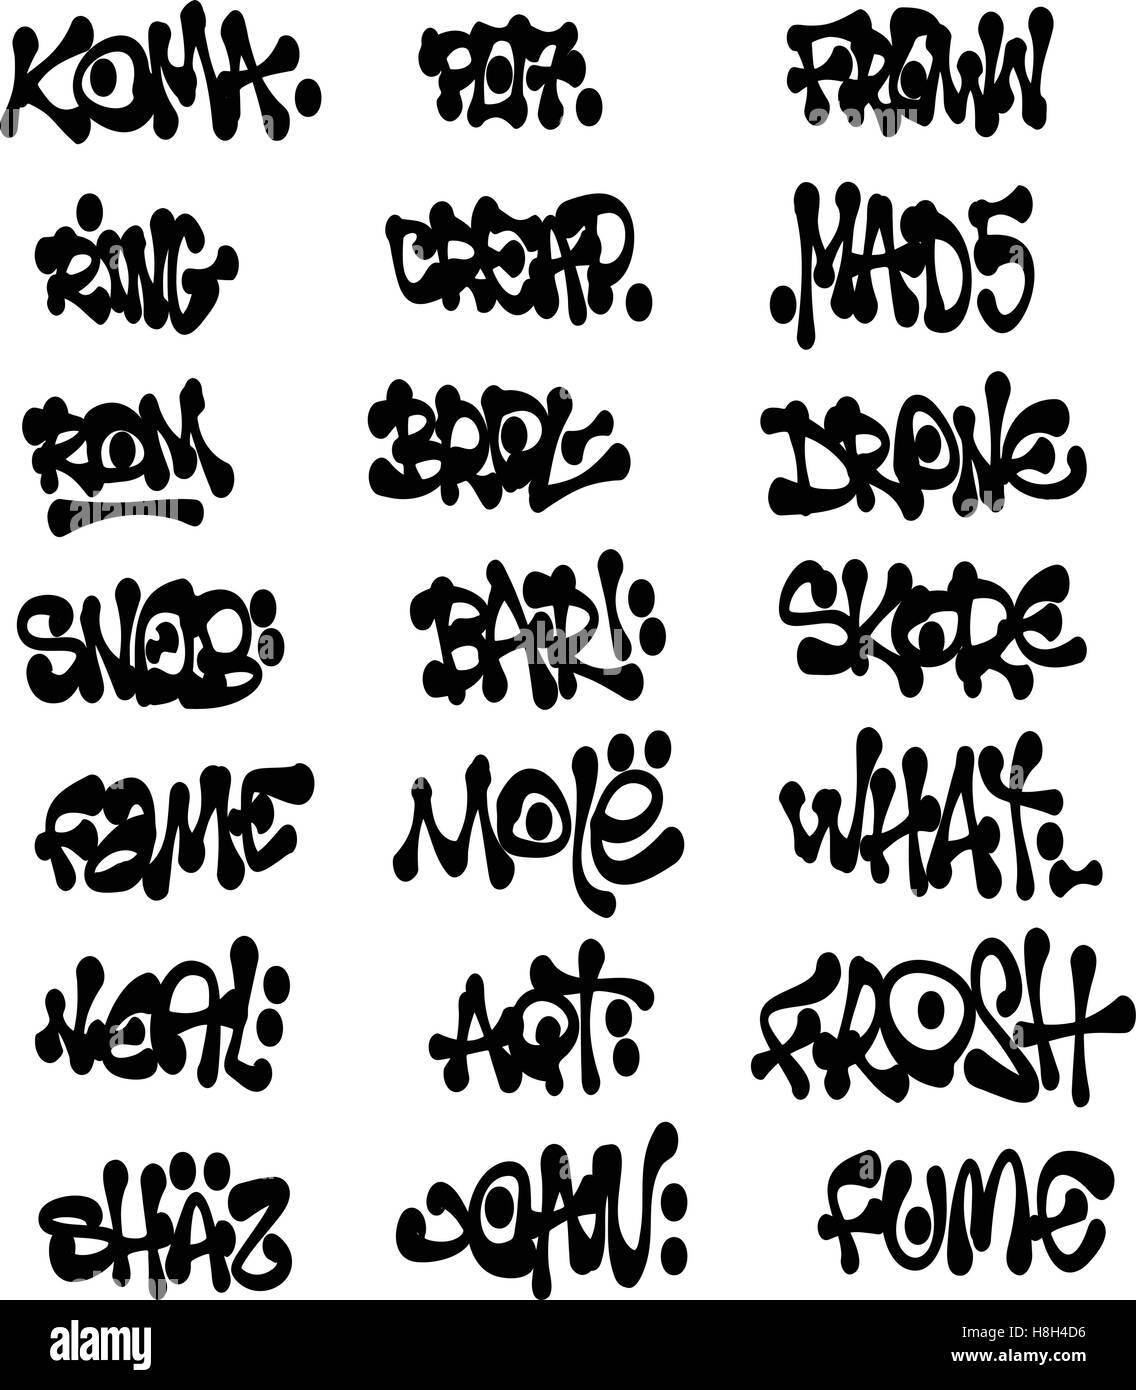 KOMA. POT. FROWN
RING CREAP. .MAD5
ROM BROL DRONE
SNOB: BAR!: SKORE
FAME MOLË WHAT:
NEAL: AOT: FROSH
SHÄZ JOAN: FUME
alamy stock photo
H8H4D6
www.alamy.com